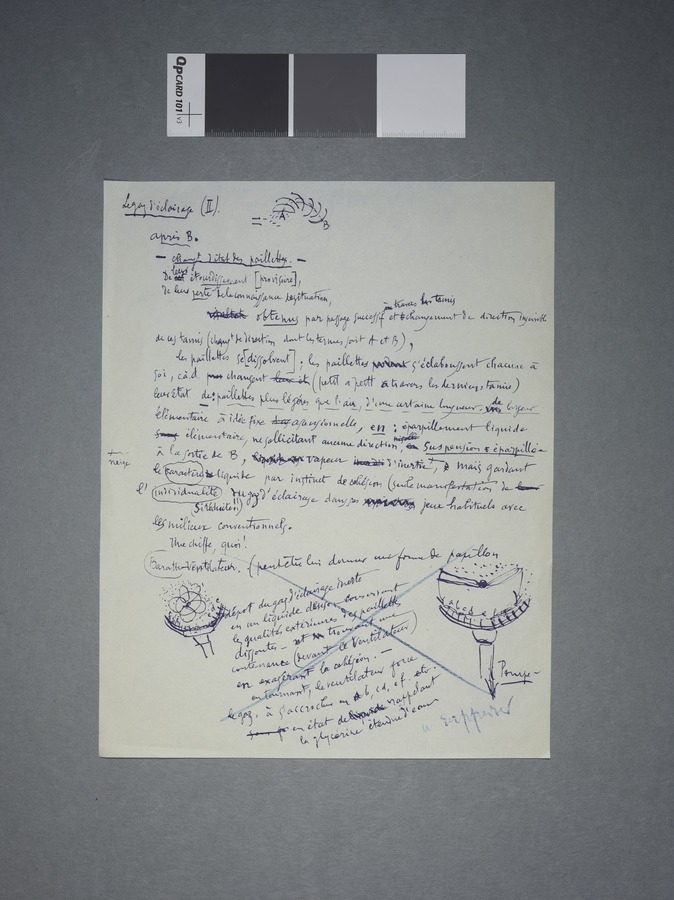 QPCARD 101 v3
Le gaz d'éclairage (II).
A
B
après B.
— chang^t d'état des paillettes. —
De leur étourdissement [provisoire],
de leur perte de la connaissance de situation,
obtenus par passage successif à travers les tamis et changement de direction insensible
de ces tamis (chang^t de direction dont les termes sont A et B),
les paillettes se [dissolvent]; les paillettes s'éclaboussent chacune à
soi, c.à.d. changent (petit à petit à travers les derniers tamis)
leur état de: paillettes plus légères que l'air, d'une certaine longueur, de largeur
élémentaire à idée fixe ascensionnelle, en: éparpillement liquide
élémentaire, ne sollicitant aucune direction, suspension éparpillée
à la sortie de B, vapeur d'inertie, mais gardant
neige
le caractère liquide par instinct de cohésion (seule manifestation de
l'individualité du gaz d'éclairage dans ses jeux habituels avec
(si réduite!!)
les milieux conventionnels.
Une chiffe, quoi!
Baratte-Ventilateur. (peut-être lui donner une forme de papillon
dépôt du gaz d'éclairage inerte
en un liquide dense conservant
les qualités extérieures des paillettes
dissoutes — et trouvant une
contenance (devant le Ventilateur)
en exagérant la cohésion. —
en tournant, le ventilateur force
le gaz, à s'accrocher en a b, cd, ef. etc.
en état de rappelant
la glycérine étendue d'eau
Pompe